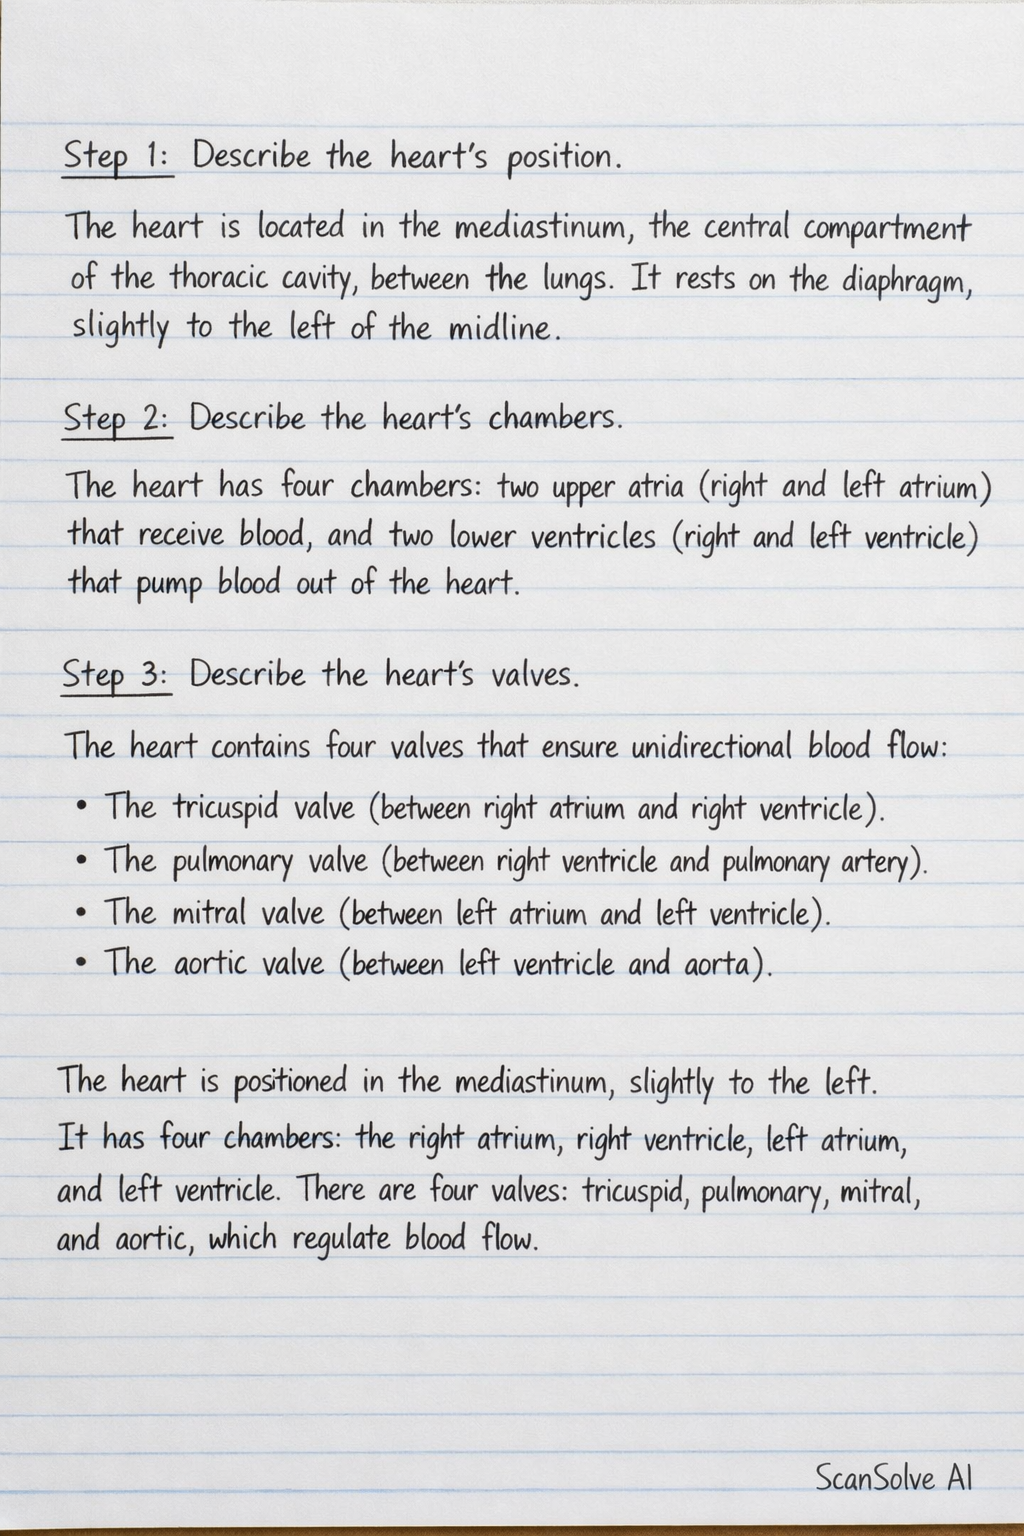 Step 1: Describe the heart's position.
The heart is located in the mediastinum, the central compartment
of the thoracic cavity, between the lungs. It rests on the diaphragm,
slightly to the left of the midline.
Step 2: Describe the heart's chambers.
The heart has four chambers: two upper atria (right and left atrium)
that receive blood, and two lower ventricles (right and left ventricle)
that pump blood out of the heart.
Step 3: Describe the heart's valves.
The heart contains four valves that ensure unidirectional blood flow:
• The tricuspid valve (between right atrium and right ventricle).
• The pulmonary valve (between right ventricle and pulmonary artery).
• The mitral valve (between left atrium and left ventricle).
• The aortic valve (between left ventricle and aorta).
The heart is positioned in the mediastinum, slightly to the left.
It has four chambers: the right atrium, right ventricle, left atrium,
and left ventricle. There are four valves: tricuspid, pulmonary, mitral,
and aortic, which regulate blood flow.
ScanSolve AI